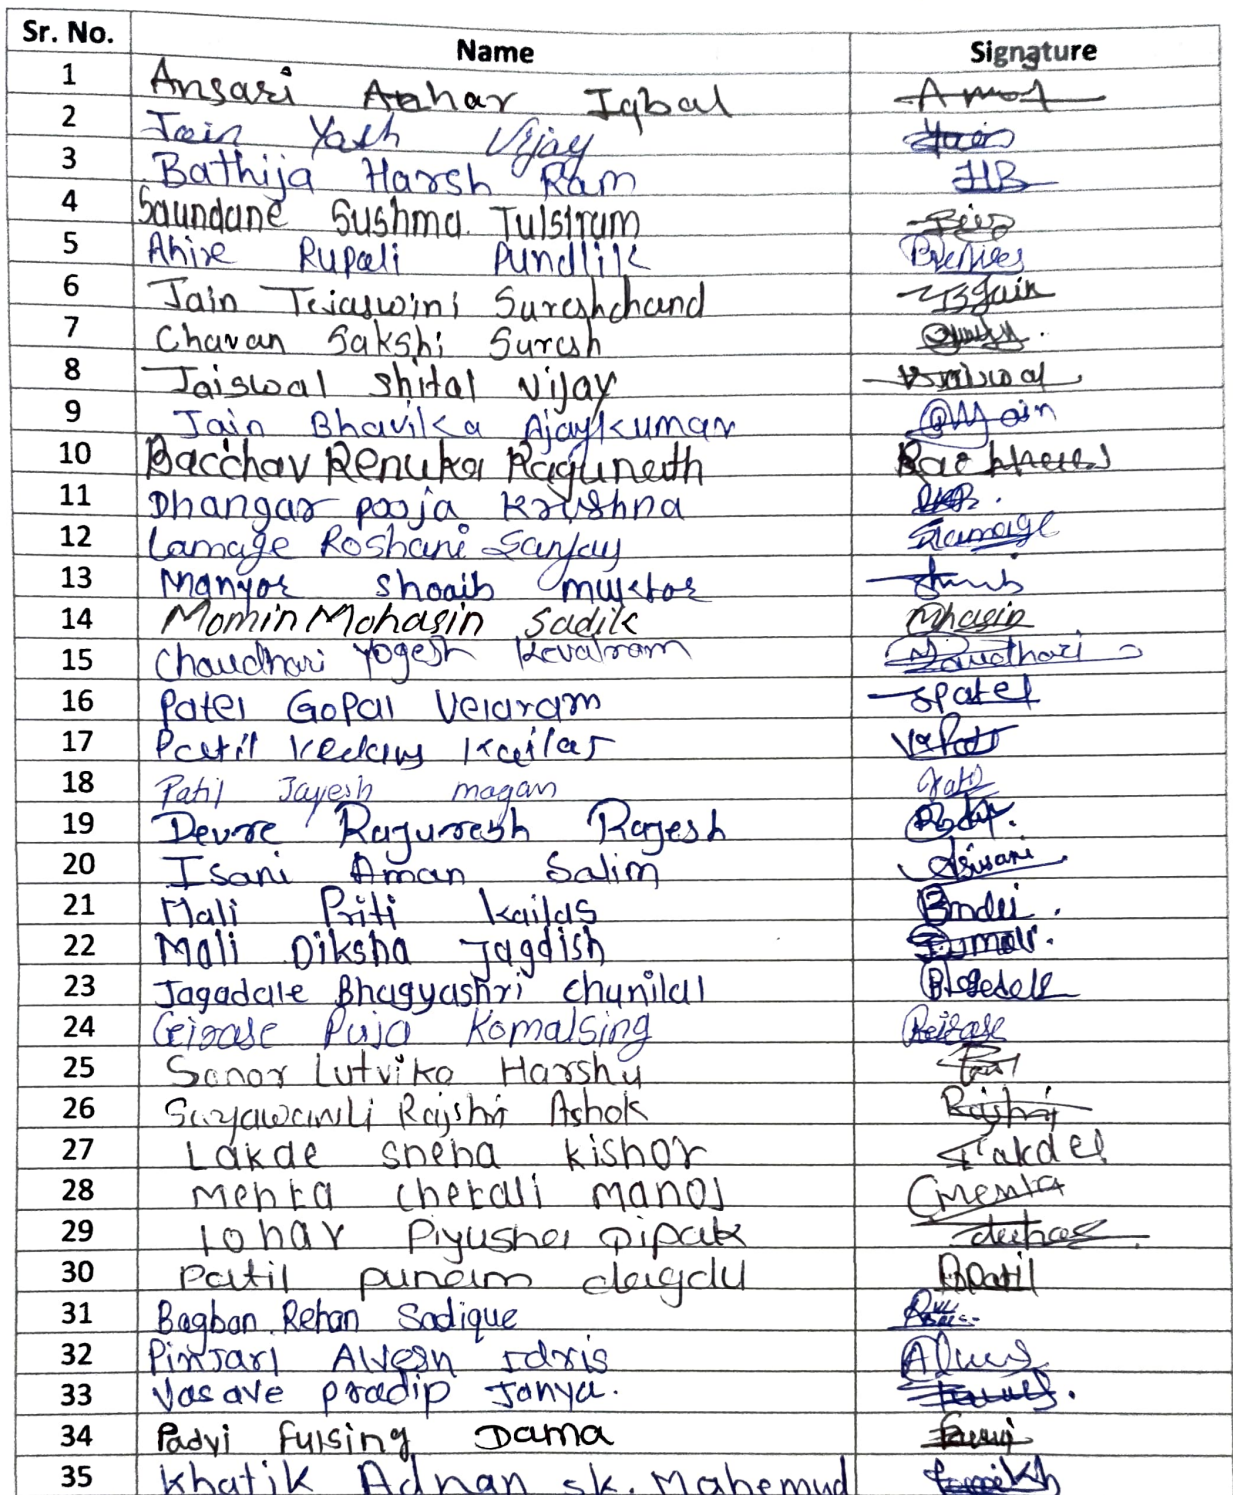 Sr. No. Name Signature
1 Ansari Athar Iqbal
2 Jain Yash Vijay
3 Bathija Harsh Ram HB
4 Saundane Sushma Tulsiram
5 Ahire Rupali Pundlik
6 Jain Tejaswini Sureshchand Jain
7 Chavan Sakshi Suresh
8 Jaiswal Shital Vijay
9 Jain Bhavika Ajaykumar
10 Bacchav Renuka Ragunath
11 Dhangar pooja Krishna
12 Lamage Roshani Sanjay
13 Manyar shoaib muktar
14 Momin Mohasin Sadik Mhasin
15 Chaudhari Yogesh Kevalram
16 Patel Gopal Velaram Patel
17 Patil Kailas
18 Patil Jayesh magan
19 Devre Rajesh
20 Isani Aman Salim
21 Mali Priti kailas
22 Mali Diksha Jagdish
23 Jagadale Bhagyashri chunilal
24 Girase Puja Komalsing
25 Sonar Harshu
26 Suryawanshi Rajshri Ashok Rajshri
27 Lakde sneha kishor
28 Mehta chetali manoj Mehta
29 Lohar Piyusha Dipak
30 Patil punam dagdu Patil
31 Bagban Rehan Sadique
32 Pinjari Idris
33 Vasave pradip Janya.
34 Padvi fulsing Dama
35 Khatik Adnan sk. Mahemud